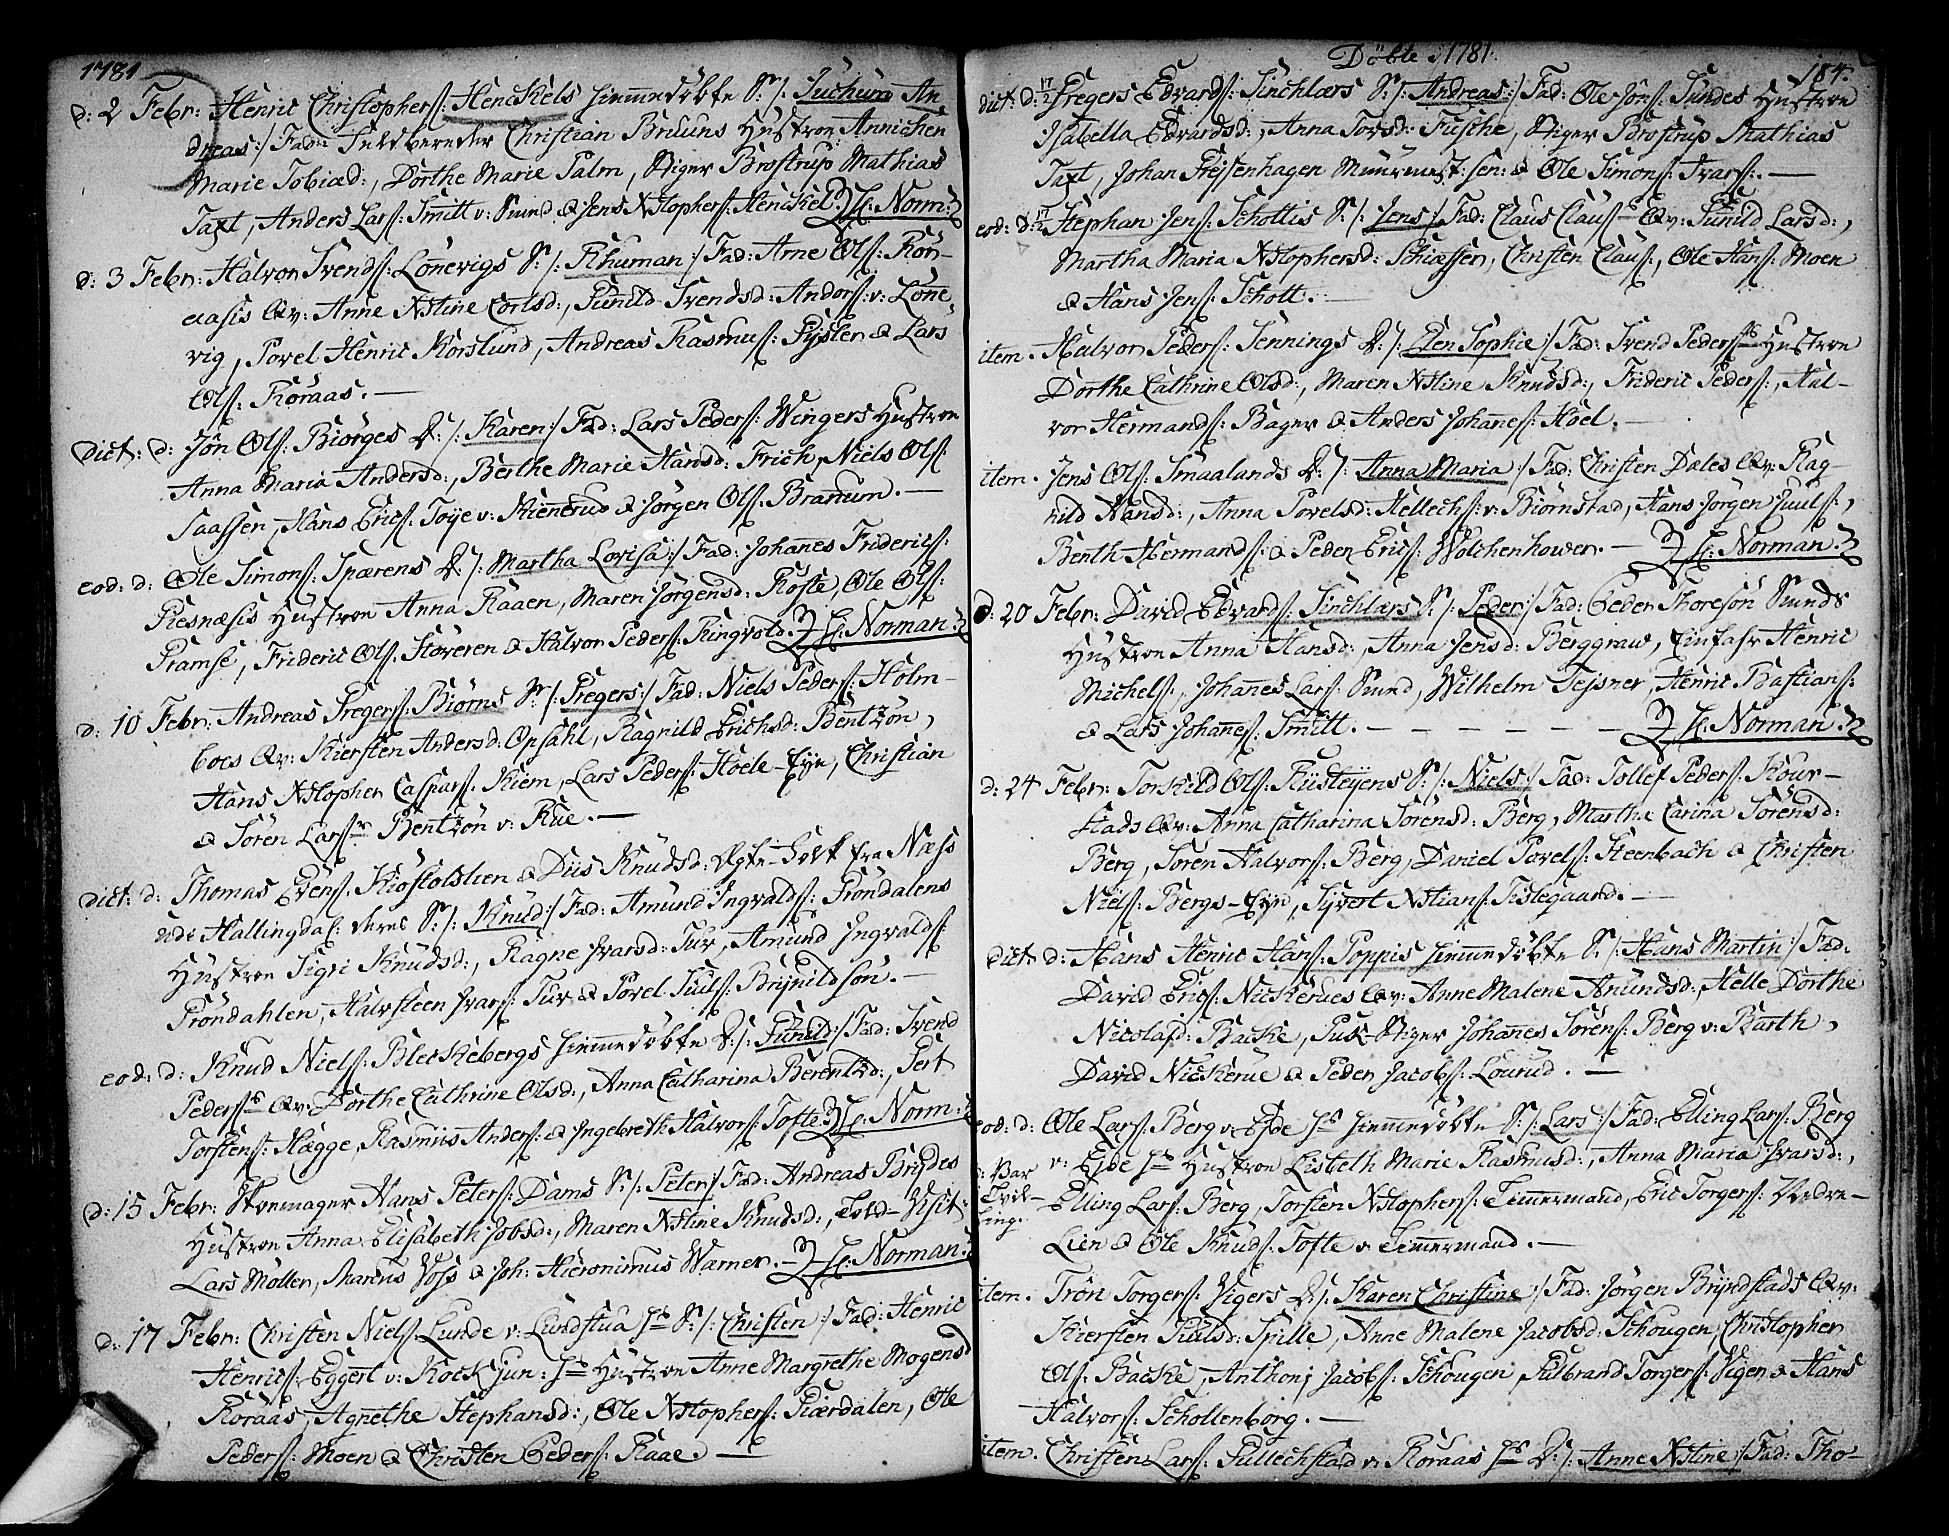 1781
d: 2 Febr: Henric Christophers: Henckels hiemmedöbte S: /: Juchum An-
dreas :/ Fad: Feldbereder Christian Bruuns Hustroe Annichen
Marie Tobiæd:, Dorthe Marie Palm, Stiger Brostrup Mathias
Taxt, Anders Lars: Smitt v: Sund & Jens Xstophers: Henckel. H: Norm:
d: 3 Febr: Halvor Svends: Lonevigs S: /: Rhuman :/ Fad: Arne Ols: Kor-
aasis Qv: Anne Xstine Corlsd:, Gunild Svendsd: Andors: v: Lone-
vig, Povel Henric Korslund, Andreas Rasmus: Gysler & Lars
Ols: Koraas. —
dict: d: Jön Ols: Biörges D: /: Karen :/ Fad: Lars Peders: Wingers Hustroe
Anna Maria Andersd:, Berthe Marie Hansd: Frich, Niels Ols:
Saassen, Hans Erics: Toye v: Kiennerud & Jörgen Ols: Brannum. —
eod: d: Ole Simons: Spærens D: /: Martha Lovisa :/ Fad: Johannes Frideric:
Giesnæsis Hustroe Anna Raaen, Maren Jörgensd: Roste, Ole Ols:
Pramse, Frideric Ols: Stöveren & Halvor Peders: Ringvold. H: Norman.
d: 10 Febr: Andreas Gregers: Biörns S: /: Gregers :/ Fad: Niels Peders: Holm-
boes Qv: Kiersten Andersd: Opsahl, Ragnild Erichsd: Bentzön,
Hans Xstopher Caspars: Kiem, Lars Peders: Hoele-Eye, Christian
& Sören Lars: Bentzön v: Rue. —
dict: d: Thomas Evens: Kioskoldlien & Diis Knudsd: Ægte-Folk fra Næss
udi Hallingdal: deres S: /: Knud :/ Fad: Amund Ingvalds: Pröndalens
Hustroe Sigri Knudsd:, Ragne Ivarsd: Tuv, Amund Ingvalds:
Pröndahlen, Halvsteen Ivars: Tuv & Povel Juuls: Brynildsön. —
eod: d: Knud Niels: Bleckebergs hiemmedöbte D: /: Gunild :/ Fad: Svend
Peders: Qv: Dorthe Cathrine Olsd:, Anna Catharina Berentzd:, Gert
Torstens: Hægge, Rasmus Anders: & Ingebreth Halvors: Tofte. H: Norm:
d: 15 Febr: Skomager Hans Peters: Dams S: /: Peter :/ Fad: Andreas Brydes
Hustroe Anna Elisabeth Jobsd:, Maren Xstine Knudsd:, Told-Visit:
Lars Möller, Marcus Voss & Joh: Hieronimus Warner. — H: Norman.
d: 17 Febr: Christen Niels: Lunde v: Lundstua S: /: Christen :/ Fad: Henric
Henrics: Eggert v: Kock jun: Hustroe Anne Margrethe Mogensd:
Koraas, Agnethe Stephansd:, Ole Xstophers: Giærdalen, Ole
Peders: Moen & Christen Peders: Raae. —
Döbte 1781.
184.
dict: d: 17/2 Gregers Edvards: Sinchlærs S: /: Andreas :/ Fad: Ole Jöns: Sundes Hustroe
Isabella Edvardsd:, Anna Torsd: Fuske, Stiger Brostrup Mathias
Taxt, Johan Gresenhagen Muurmest: sen: & Ole Simons: Ivars:. —
eod: d: 17/2 Stephan Jens: Schottis S: /: Jens :/ Fad: Claus Claus: Qv: Gunild Larsd:,
Martha Maria Xstophersd: Schiæsser, Christen Claus:, Ole Hans: Moen
& Hans Jens: Schott. —
item. Halvor Peders: Jennings D: /: Elen Sophie :/ Fad: Svend Peders: Hustroe
Dorthe Cathrine Olsd:, Maren Xstine Knudsd:, Frideric Peders:, Hal-
vor Hermands: Bager & Anders Johannes: Hoel. —
item. Jens Ols: Smaalands D: /: Anna Maria :/ Fad: Christen Dales Qv: Rag-
nild Hansd:, Anna Povelsd: Hellechs: v: Biörnstad, Hans Jörgen Juuls:,
Benth Hermands: & Peder Erics: Wolchenhower. — H: Norman.
d: 20 Febr: David Edvards: Sinchlærs S: /: Peder :/ Fad: Peder Thoresön Sunds
Hustroe Anna Hansd:, Anna Jensd: Berggraw, Einfahr Henric
Michels:, Johannes Lars: Sund, Wilhelm Tejsner, Henric Bastians:
& Lars Johannes: Smitt. — — — — — — H: Norman.
d: 24 Febr: Torkild Ols: Rusteyens S: /: Niels :/ Fad: Tollef Peders: Skour-
stads Qv: Anna Catharina Sörensd: Berg, Martha Carina Sörensd:
Berg, Sören Halvors: Berg, Daniel Povels: Steenbach & Christen
Niels: Bergs-Eye, Syvert Xstians: Fislegaard. —
dict: d: Hans Henric Hans: Poppis hiemmedöbte S: /: Hans Martin :/ Fad:
David Erics: Nickerues Qv: Anne Malene Amundsd:, Helle Dorthe
Nicolajd: Backe, Puk-Stiger Johannes Sörens: Berg v: Barth,
David Nickerue & Peder Jacobs: Lourud. —
eod: d: Ole Lars: Berg v: Eyde hiemmedöbte S: /: Lars :/ Fad: Elling Lars: Berg
v: Eyde Hustroe Lisbeth Marie Rasmusd:, Anna Maria Ivarsd:,
: Var
Tvil-
ling.
Elling Lars: Berg, Torsten Xstophers: Temmermand, Eric Torgers: Vedve-
Lien & Ole Knuds: Tofte v: Temmermand. —
item. Trön Torgers: Vigers D: /: Karen Christine :/ Fad: Jörgen Bryndstads Qv:
Kiersten Juulsd: Spille, Anne Malene Jacobsd: Schougen, Christopher
Ols: Backe, Anthonj Jacobs: Schougen, Gulbrand Torgers: Vigen & Hans
Halvors: Schollenborg. —
item. Christen Lars: Gullechstad v: Koraas D: /: Anne Xstine :/ Fad: Tho-